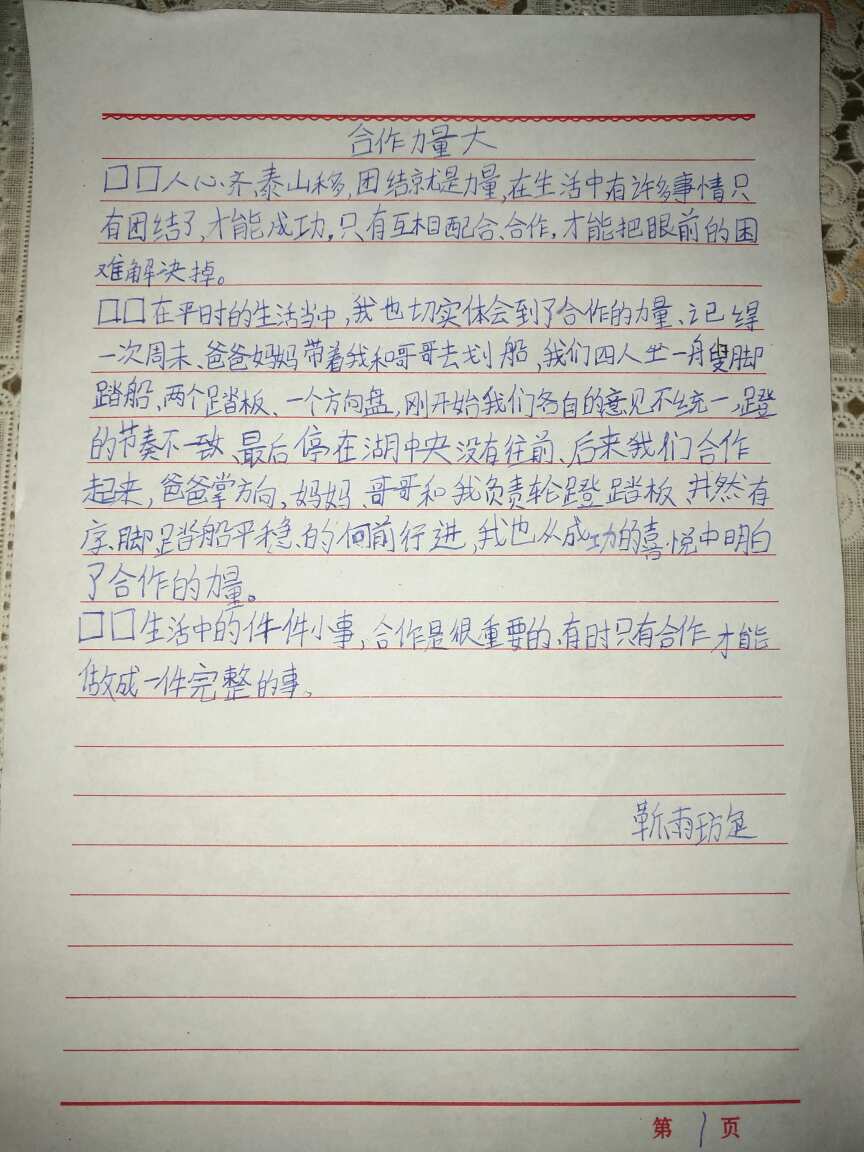 合作力量大
口口人心齐,泰山移,团结就是力量,在生活中有许多事情只
有团结了,才能成功。只有互相配合、合作,才能把眼前的困
难解决掉。
口口在平时的生活当中,我也切实体会到了合作的力量、记得
一次周末、爸爸妈妈带着我和哥哥去划船,我们四人坐一艘脚
踏船、两个踏板、一个方向盘,刚开始我们各自的意见不统一,蹬
的节奏不一致、最后停在湖中央没有往前、后来我们合作
起来,爸爸掌方向,妈妈、哥哥和我负责轮蹬踏板、井然有
序、脚踏船平稳的向前行进,我也从成功的喜悦中明白
了合作的力量。
口口生活中的件件小事,合作是很重要的、有时只有合作才能
做成一件完整的事。
靳雨
第1页